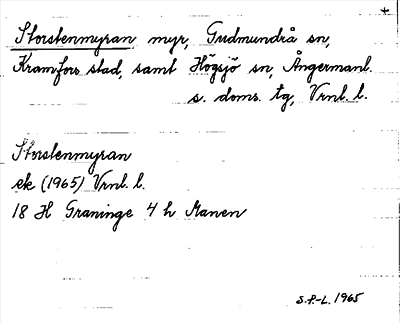 Storstenmyran myr, Gudmundrå sn,
Kramfors stad, samt Högsjö sn, Ångermanl.
s. doms. tg, Vrnl. l.
Storstenmyran
ek (1965) Vrnl. l.
18 H Graninge 4 h Manen
S.P-L. 1965